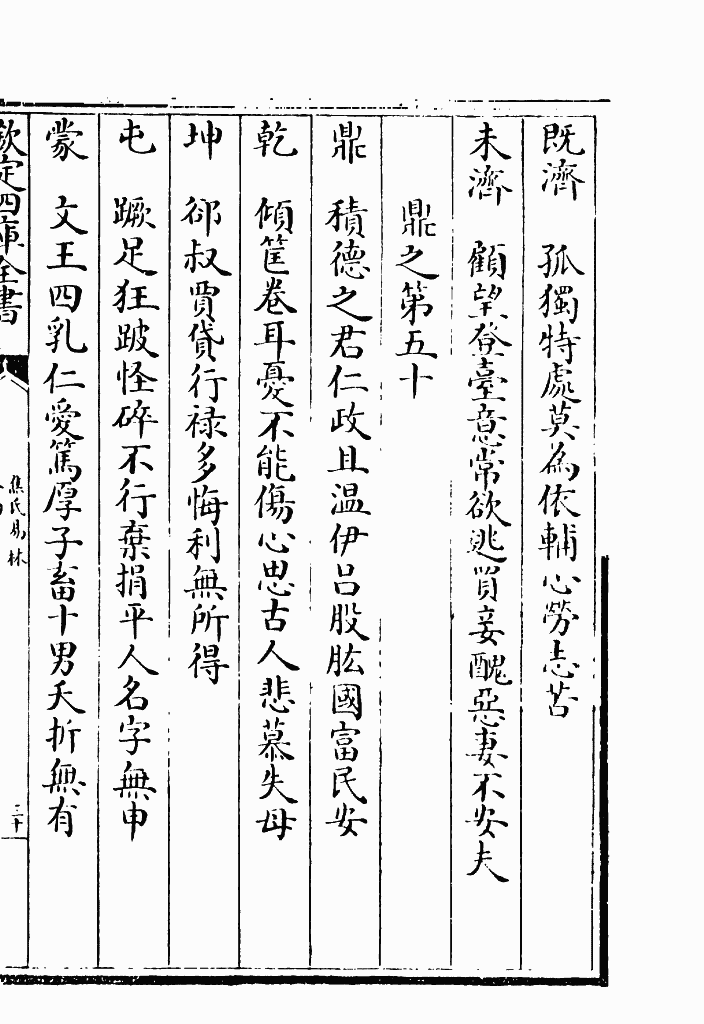 既濟　孤獨特處莫為依輔心勞志苦
未濟　顧望登臺意常欲逃買妾醜惡妻不安夫
鼎之第五十
鼎　積德之君仁政且温伊吕股肱國富民安
乾　傾筐卷耳憂不能傷心思古人悲慕失母
坤　邻叔賈貸行禄多悔利無所得
屯　蹶足狂跛怪碎不行棄捐平人名字無申
蒙　文王四乳仁愛篤厚子畜十男夭折無有
欽定四庫全書
焦氏易林
三十